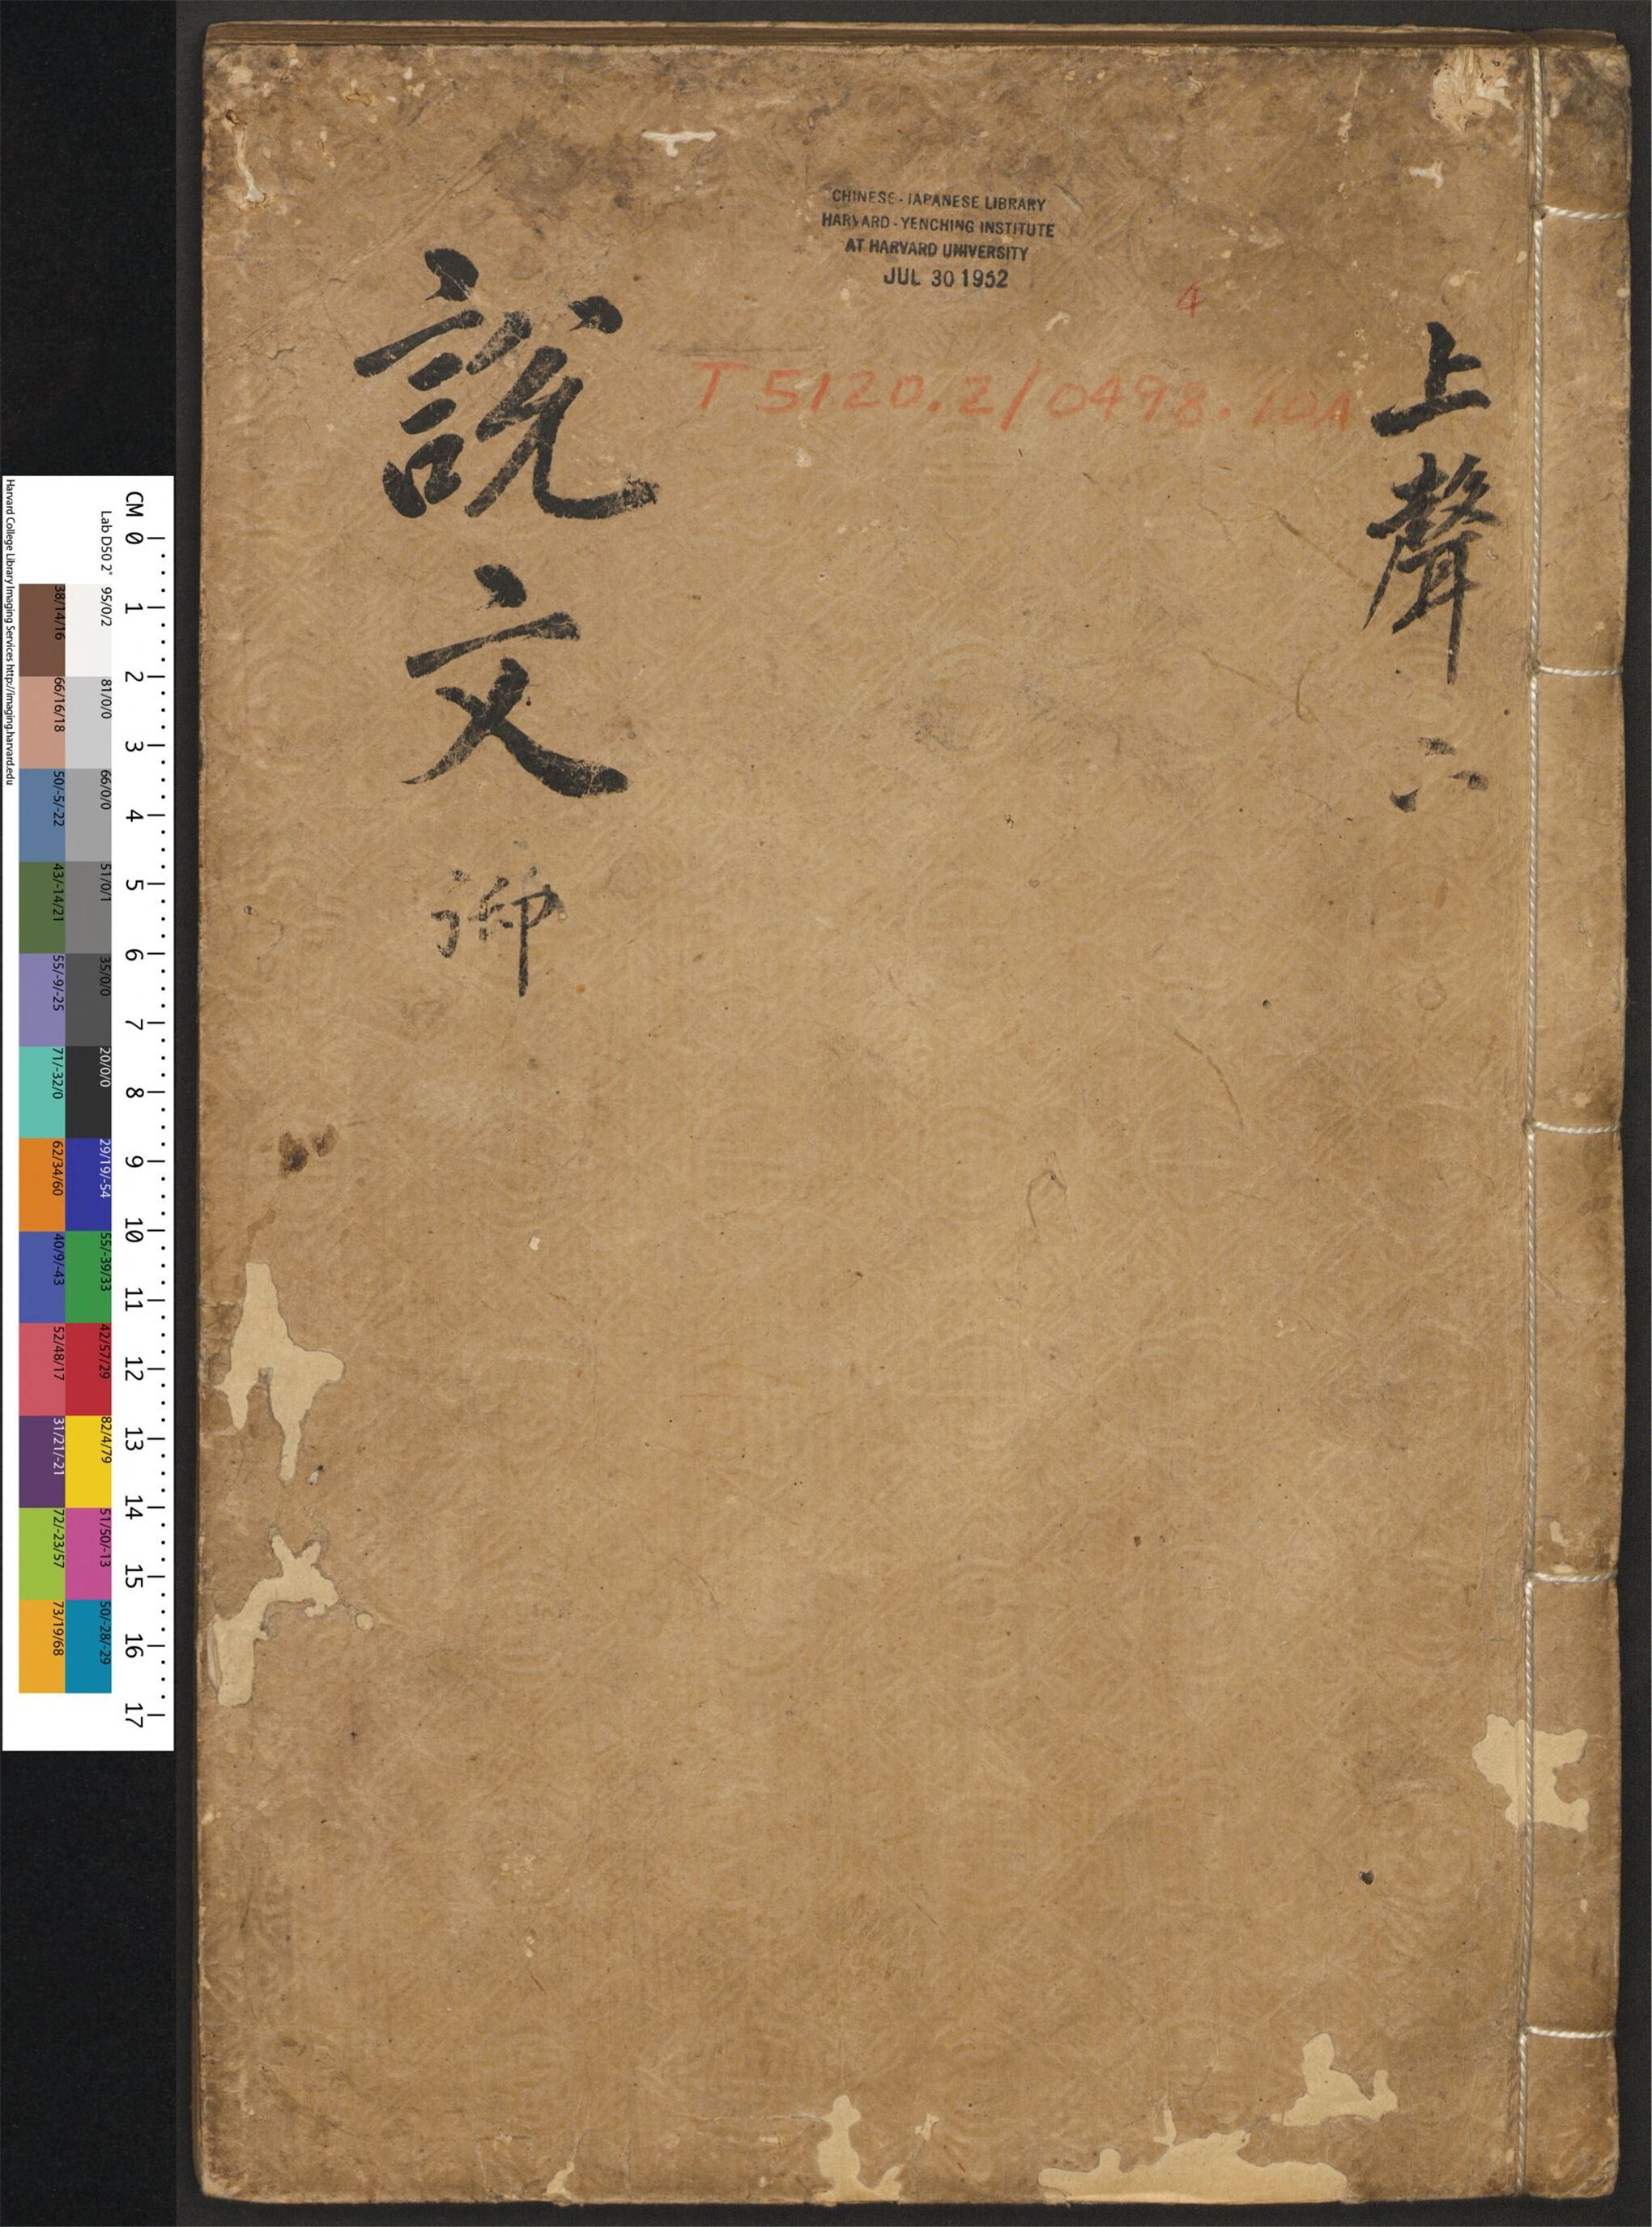 上聲 六
CHINESE-JAPANESE LIBRARY
HARVARD-YENCHING INSTITUTE
AT HARVARD UNIVERSITY
JUL 30 1952
4
T 5120.2/0498.10A
說文 御
CM 0 1 2 3 4 5 6 7 8 9 10 11 12 13 14 15 16 17
Lab D50 2° 95/0/2 81/0/0 66/0/0 51/0/1 35/0/0 20/0/0 29/19/-54 55/-39/33 42/57/29 82/4/79 51/50/-13 50/-28/-29
38/14/16 66/16/18 50/-5/-22 43/-14/21 55/-9/-25 71/-32/0 62/34/60 40/9/-43 52/48/17 31/21/-21 72/-23/57 73/19/68
Harvard College Library Imaging Services http://imaging.harvard.edu